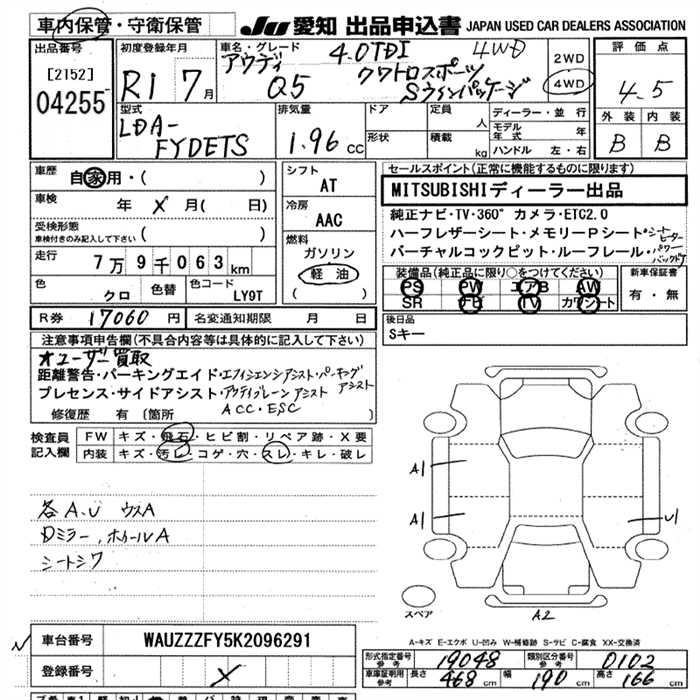 車内保管・守衛保管 JU 愛知 出品申込書 JAPAN USED CAR DEALERS ASSOCIATION
出品番号 [2152] 04255
初度登録年月 R1 7月
車名・グレード アウディ Q5 4.0TDI 4WD
クワトロスポーツ
Sラインパッケージ
2WD
4WD
評価点 4.5
外装 内装
B B
型式 LDA-FYDETS
排気量 1.96 cc
ドア 形状
定員 人
積載 kg
ディーラー・並行
モデル年式 年
ハンドル 左・右
車歴 自家用・( )
車検 年 X月( 日)
受検形態 車検付きのみ記入して下さい ( )
走行 7万9千063km
色 クロ 色替 色コード LY9T
シフト AT
冷房 AAC
燃料 ガソリン
軽油
( )
セールスポイント(正常に機能するものに限ります)
MITSUBISHIディーラー出品
純正ナビ・TV・360°カメラ・ETC2.0
ハーフレザーシート・メモリーPシート・シートヒーター
バーチャルコックピット・ルーフレール・パワーバックドア
装備品(純正品に限り○をつけてください)
PS PW エアB AW
SR TV カワシート
新車保証書
有・無
R券 17060円 名変通知期限 月 日
後日品
Sキー
注意事項申告欄(不具合内容等は具体的に記入して下さい)
オユーザー買取
距離警告・パーキングエイド・エフィシエンシアシスト・パーキングアシスト
プレセンス・サイドアシスト・アクティブレーンアシスト
ACC・ESC
修復歴 有〔箇所
検査員記入欄
FW キズ・飛石・ヒビ割・リペア跡・X要
内装 キズ・汚レ・コゲ・穴・スレ・キレ・破レ
各A.U ウスA
Dミラー、ホイールA
シートシワ
A1
A1
U1
A2
スペア
A-キズ E-エクボ U-凹み W-補修跡 S-サビ C-腐食 XX-交換済
車台番号 WAUZZZFY5K2096291
登録番号 X
形式指定番号 参考 19048 類別区分番号 参考 0102
車庫証明用 参考 長さ 468cm 幅 190cm 高さ 166cm